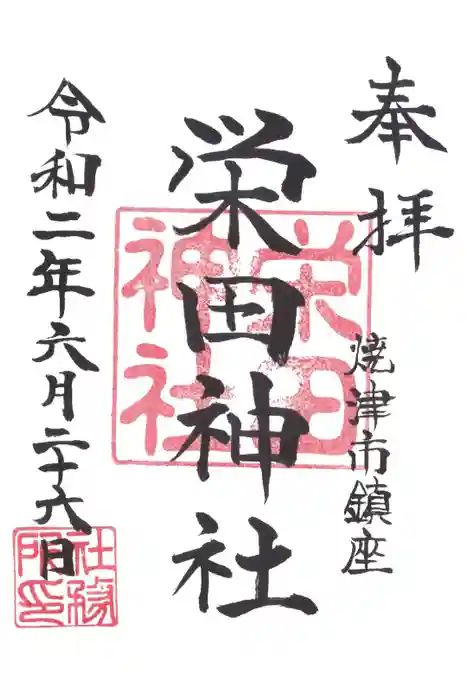 奉拝
焼津市鎮座
栄田神社
栄田
神社
令和二年六月二十六日
社務
所印